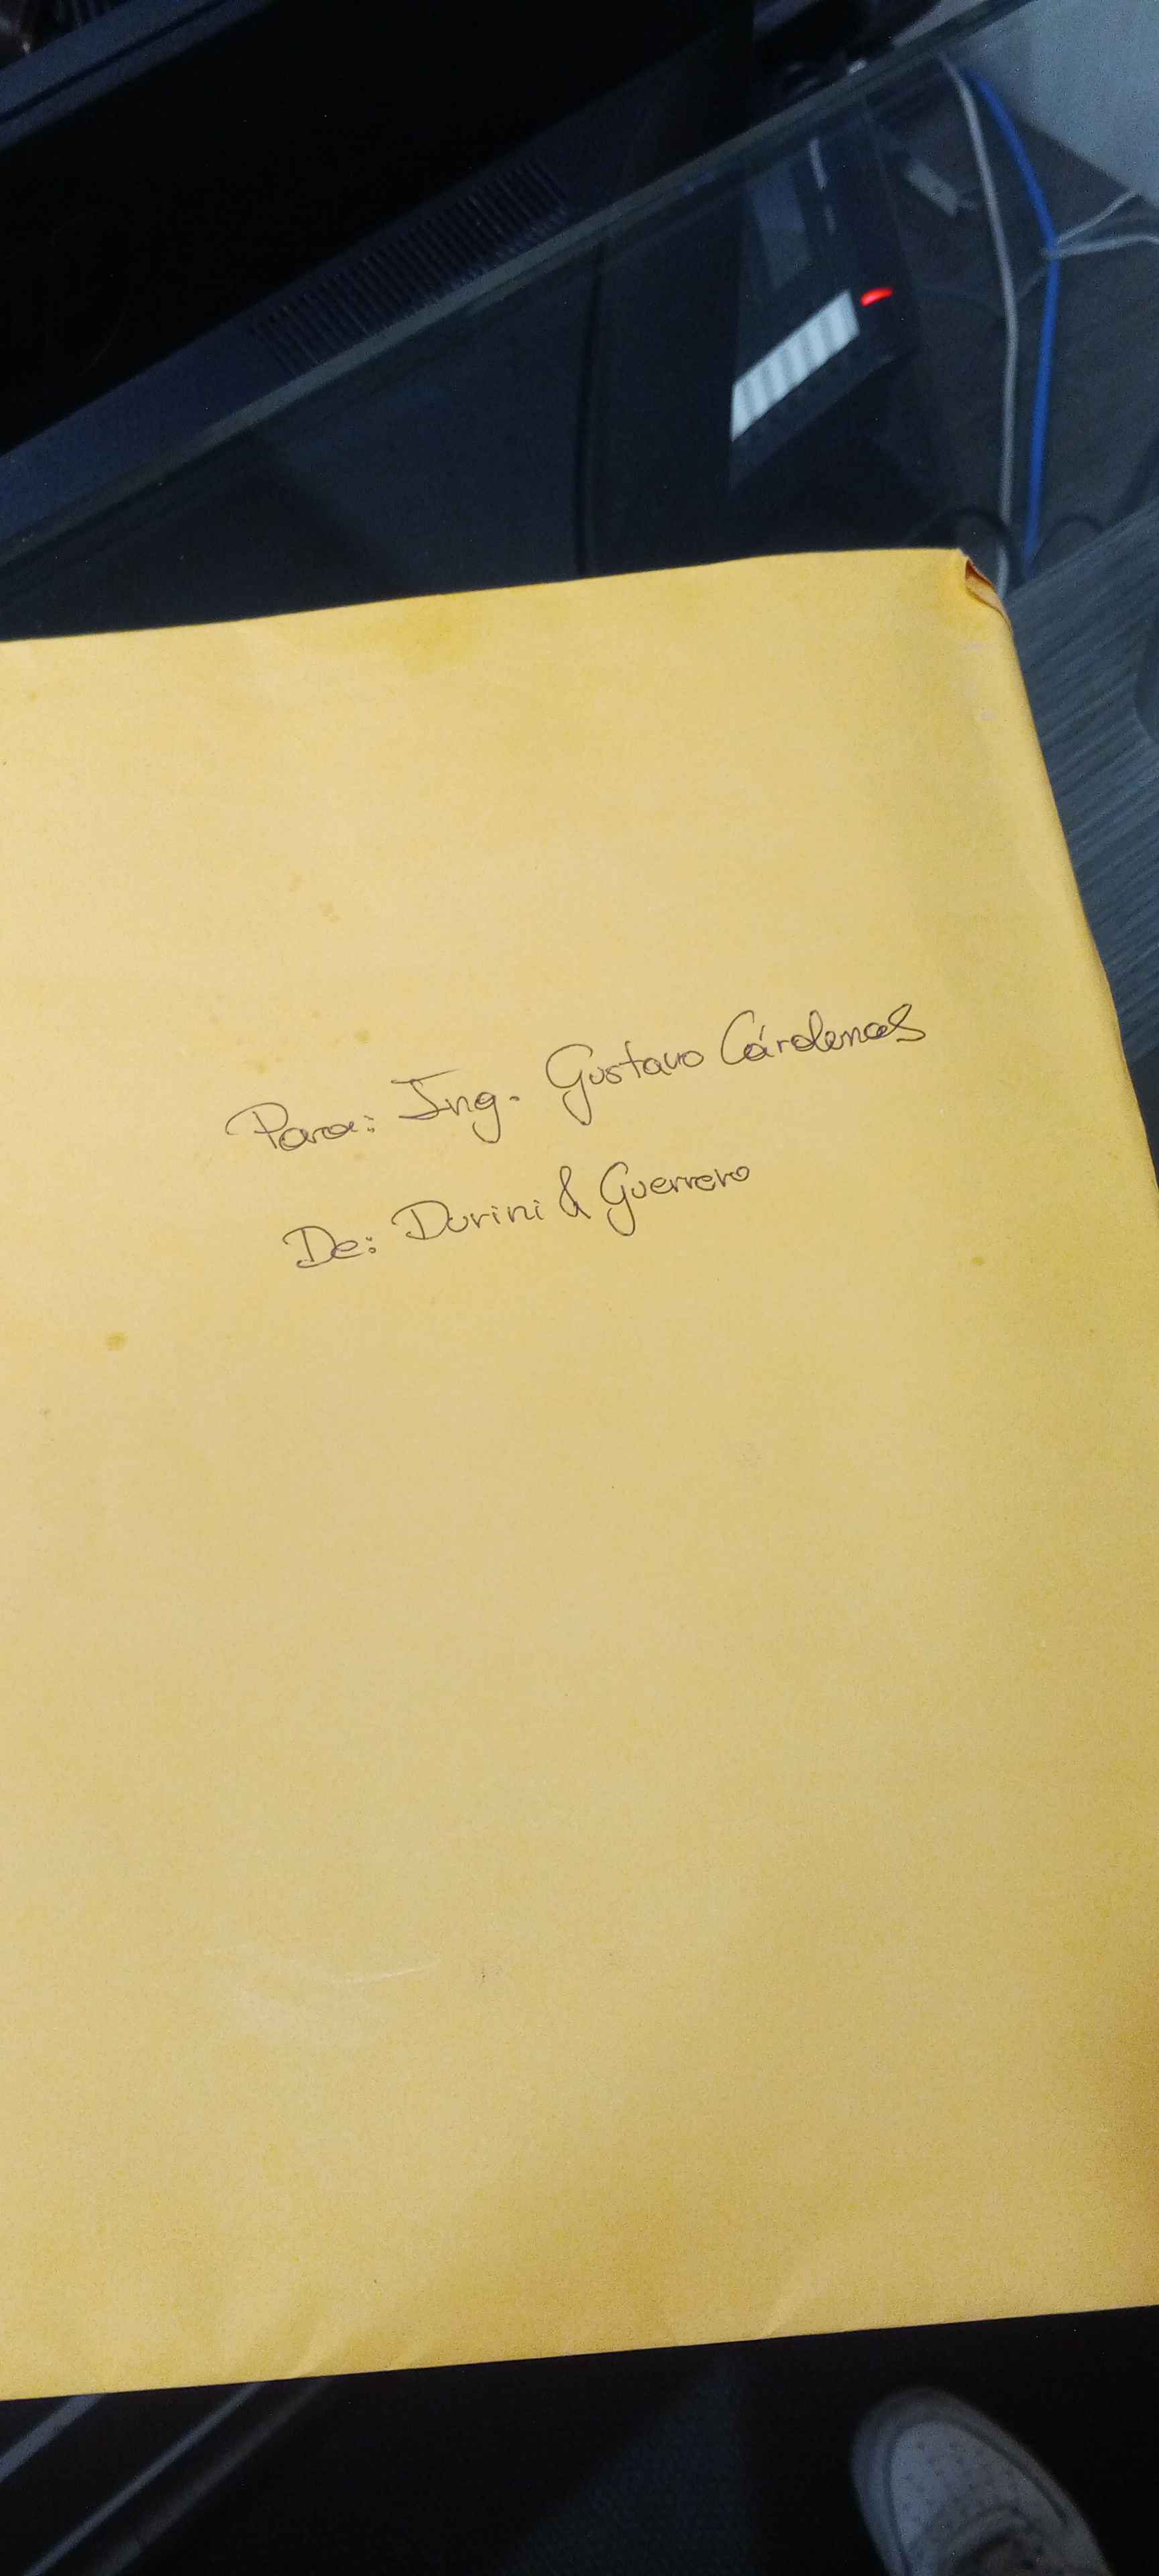 Para: Ing. Gustavo Cárdenas
De: Durini & Guerrero